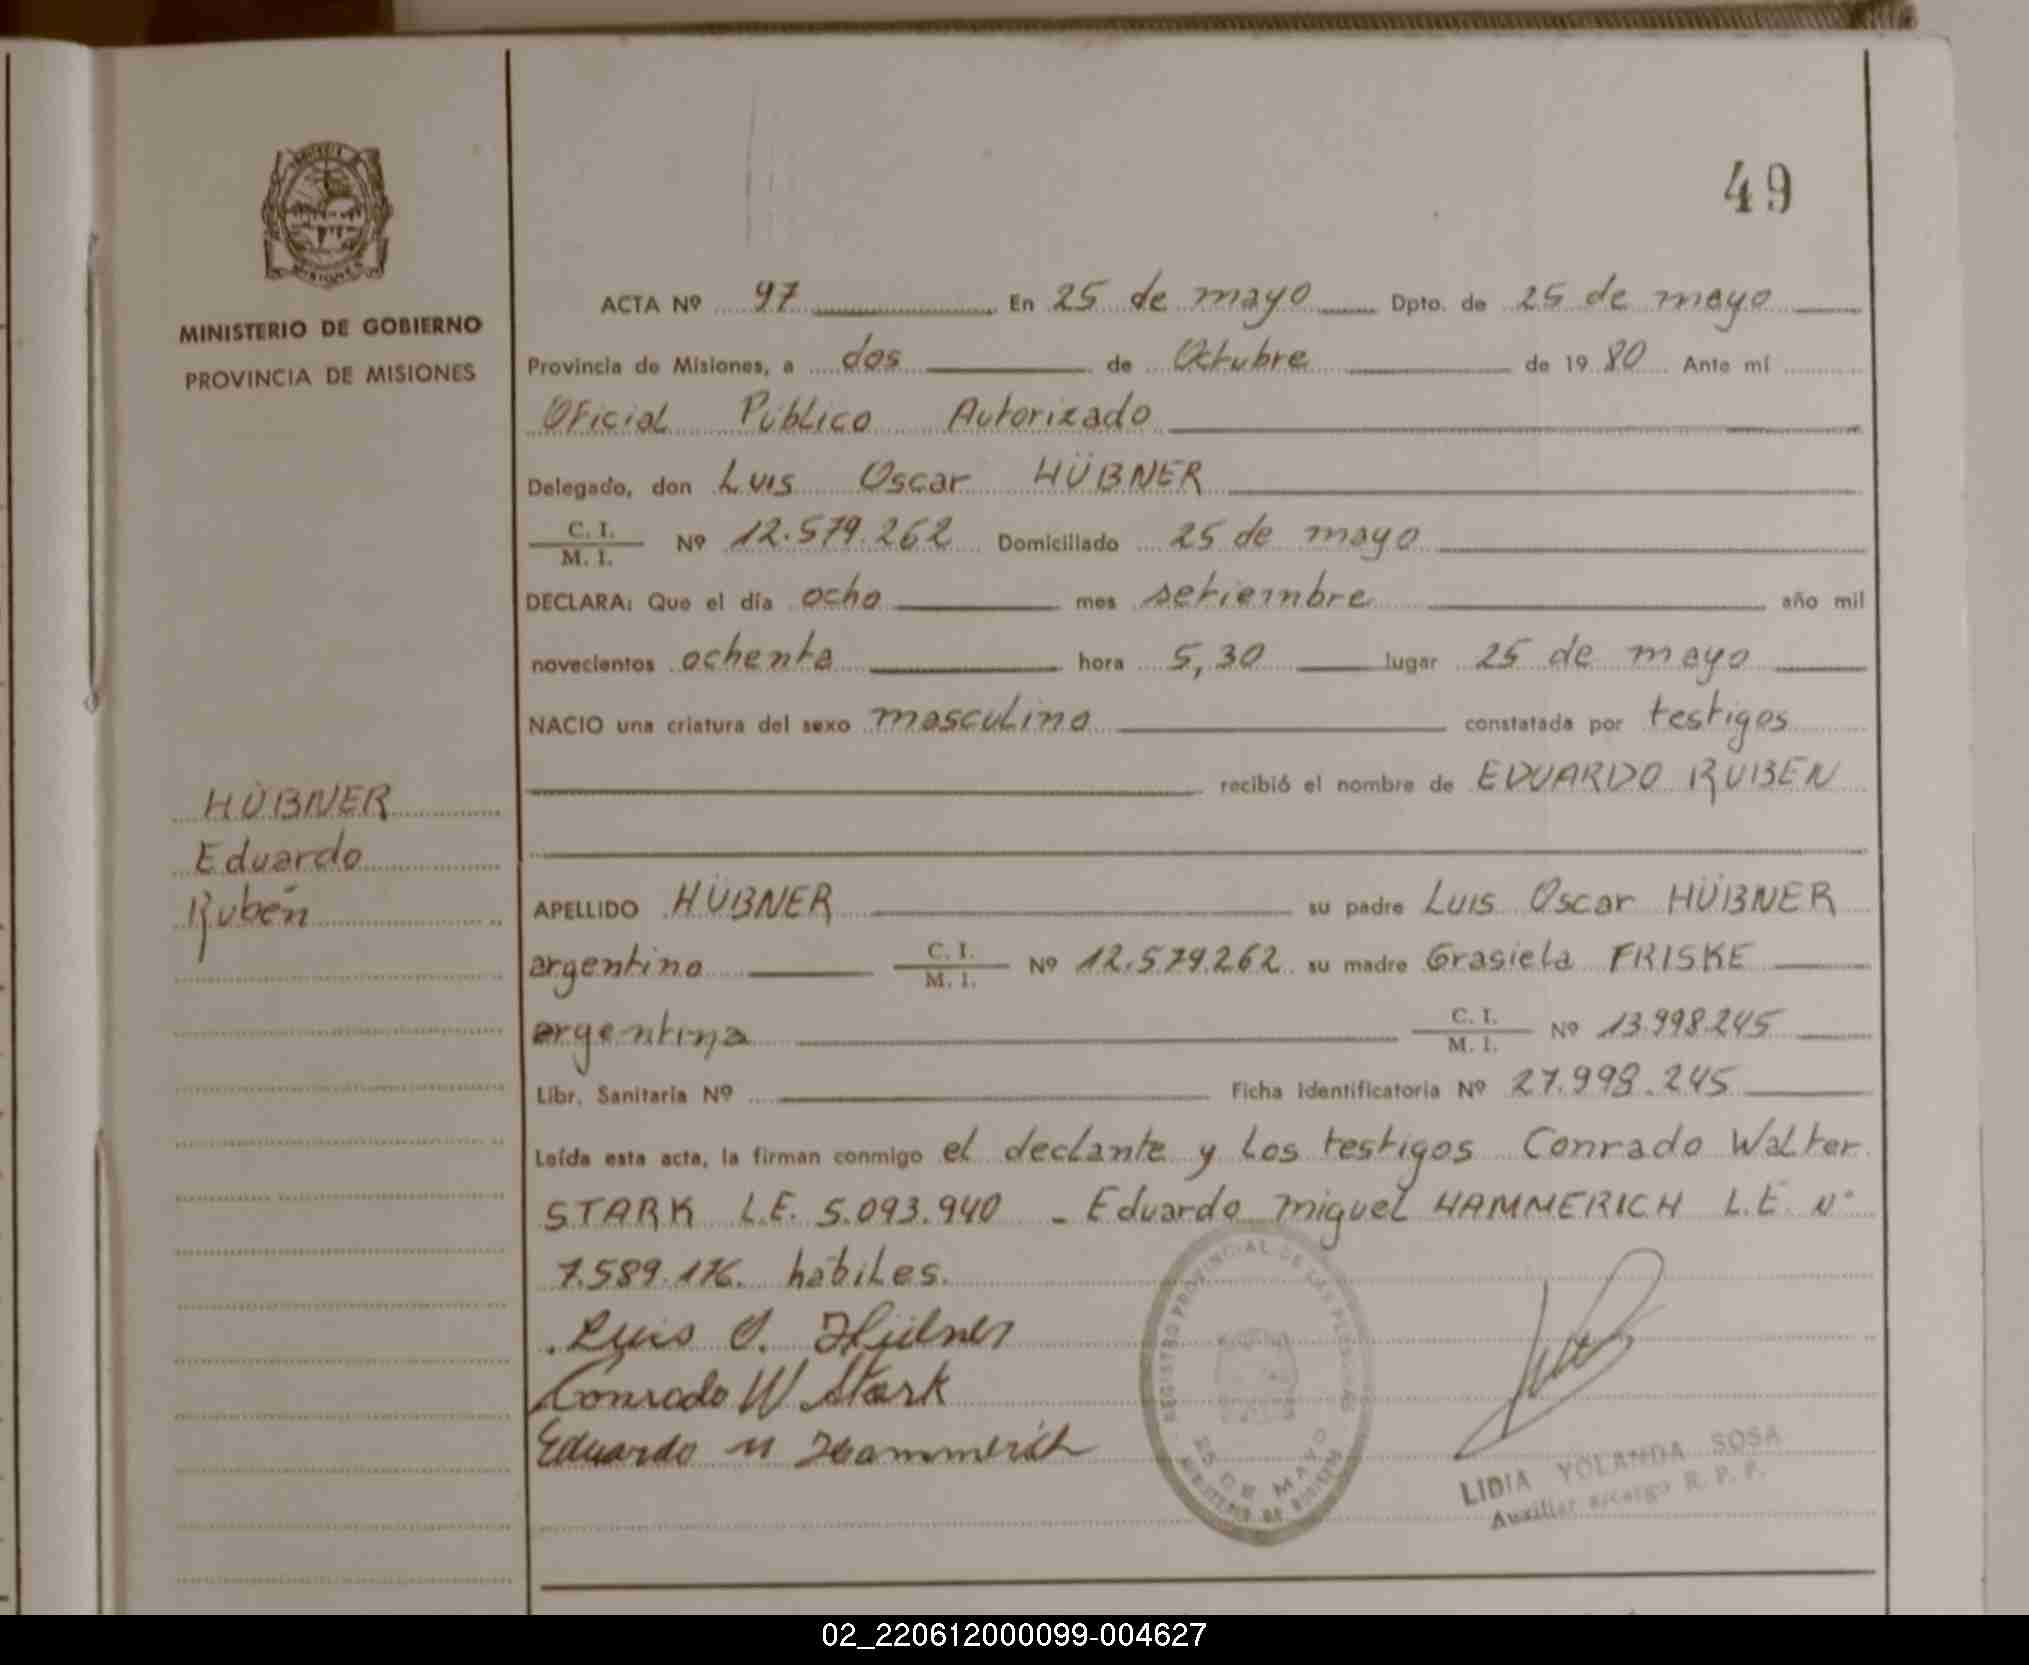 MISIONES
MINISTERIO DE GOBIERNO
PROVINCIA DE MISIONES
HÜBNER
Eduardo
Rubén
49
ACTA Nº 97 En 25 de mayo Dpto. de 25 de mayo
Provincia de Misiones, a dos de Octubre de 1980 Ante mí
Oficial Público Autorizado
Delegado, don Luis Oscar HÜBNER
C. I.
M. I. Nº 12.579.262 Domiciliado 25 de mayo
DECLARA: Que el día ocho mes setiembre año mil
novecientos ochenta hora 5,30 lugar 25 de mayo
NACIO una criatura del sexo masculino constatada por testigos
recibió el nombre de EDUARDO RUBEN
APELLIDO HÜBNER su padre Luis Oscar HÜBNER
argentino C. I.
M. I. Nº 12.579.262 su madre Grasiela FRISKE
argentina C. I.
M. I. Nº 13.998.245
Libr. Sanitaria Nº Ficha Identificatoria Nº 27.998.245
Leída esta acta, la firman conmigo el declante y los testigos Conrado Walter
STARK L.E. 5.093.940 - Eduardo Miguel HAMMERICH L.E Nº
7.589.176. habiles.
Luis O. Hübner
Conrado W Stark
Eduardo M Hammerich
REGISTRO PROVINCIAL DE LAS PERSONAS
25 DE MAYO
MINISTERIO DE GOBIERNO
LIDIA YOLANDA SOSA
Auxiliar a/cargo R. P. P.
02_220612000099-004627